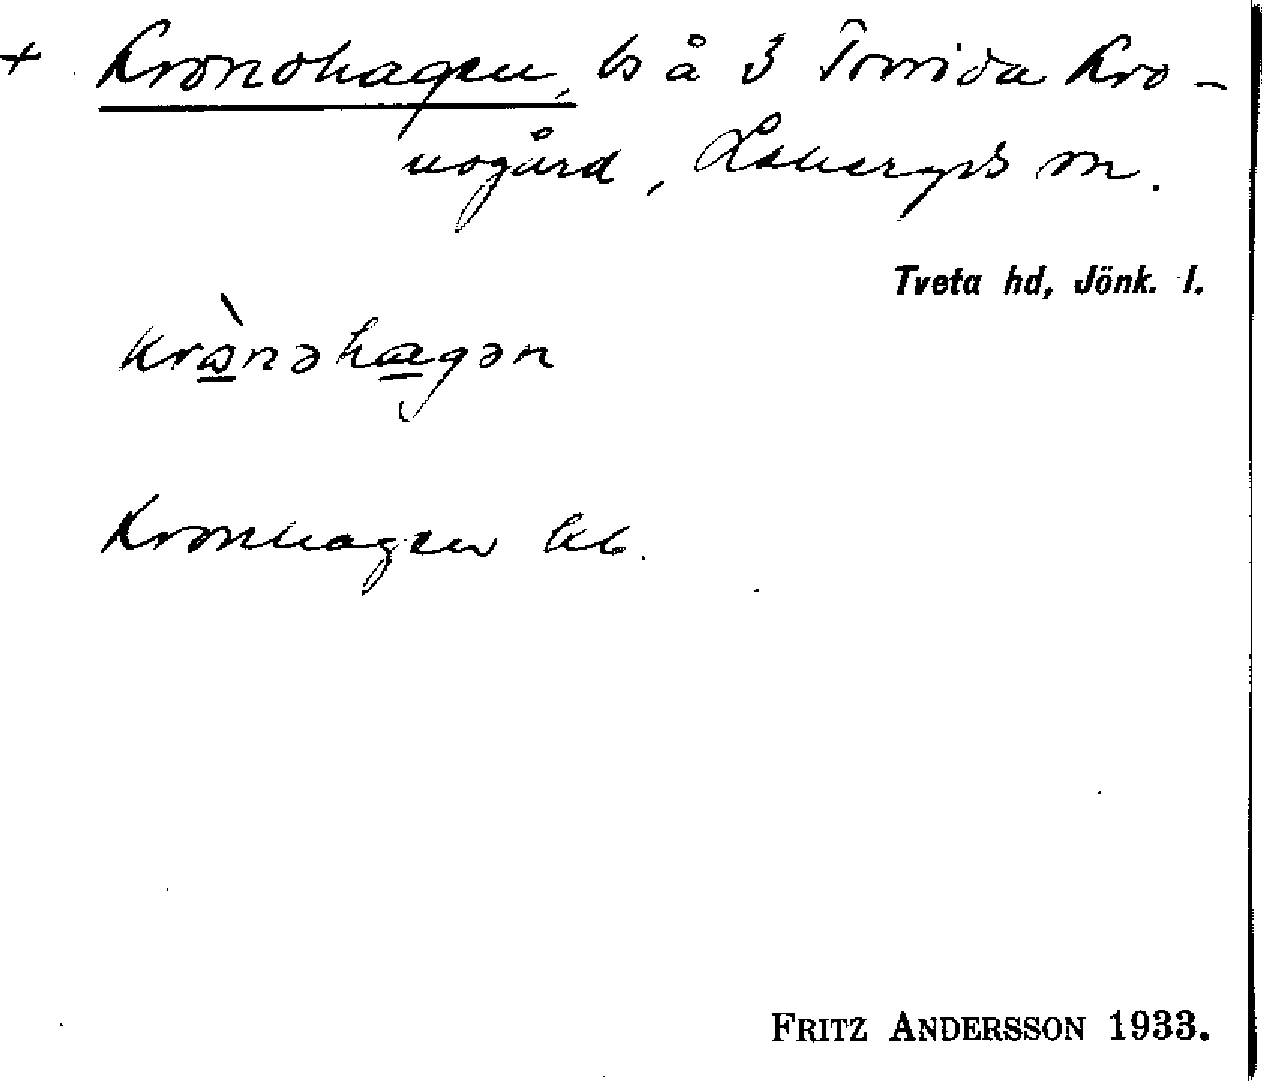 + Kronohagen, bs å 3 Torrida Kro-
nogård, Lekeryds sn.
Tveta hd, Jönk. l.
krònəhagən
Kronhagen kb.
FRITZ ANDERSSON 1933.